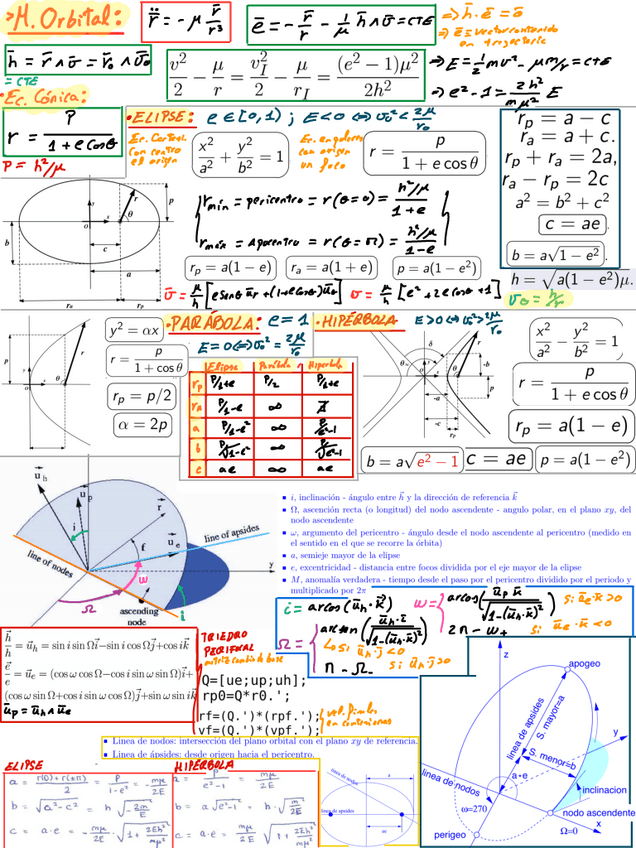 >M. Orbital:
r̈ = -μ r̄/r³
ē = -r̄/r - 1/μ h̄∧v̄ = CTE
=> h̄·ē = ō
=> ē = vector contenido en trayectoria
h̄ = r̄∧v̄ = r̄₀∧v̄₀
= CTE
v²/2 - μ/r = v_I²/2 - μ/r_I = (e²-1)μ²/2h²
=> E = 1/2 mv² - μm/r = CTE
=> e²-1 = 2h²/mμ² E
•Ec. Cónica:
r = P/(1+e cosθ)
P = h²/μ
•ELIPSE: e∈[0,1) ; E<0 <=> v₀² < 2μ/r₀
Ec. Cartesi. con centro el origen
x²/a² + y²/b² = 1
Ec. en polares con origen un foco
r = p/(1 + e cos θ)
r_p = a - c
r_a = a + c.
r_p + r_a = 2a,
r_a - r_p = 2c
a² = b² + c²
c = ae.
b = a√(1 - e²).
h = √(a(1 - e²)μ).
v_θ = h/r
r_mín = pericentro = r(θ=0) = (h²/μ)/(1+e)
r_máx = apocentro = r(θ=π) = (h²/μ)/(1-e)
r_p = a(1 - e)
r_a = a(1 + e)
p = a(1 - e²)
v̄ = μ/h [e senθ ūr + (1+e cosθ)ūθ]
v = μ/h [e² + 2e cosθ + 1]
•PARÁBOLA: e = 1
E = 0 <=> v₀² = 2μ/r₀
y² = αx
r = p/(1 + cos θ)
r_p = p/2
α = 2p
•HIPÉRBOLA
E>0 <=> v₀² > 2μ/r₀
x²/a² - y²/b² = 1
r = p/(1 + e cos θ)
r_p = a(1 - e)
b = a√(e² - 1)
c = ae
p = a(1 - e²)
Elipse Parábola Hipérbola
r_p P/1+e P/2 P/1+e
r_A P/1-e ∞ ∄
a P/1-e² ∞ P/e²-1
b P/√1-e² ∞ P/√e²-1
c ae ∞ ae
u_h
u_p
i
r
u_e
line of apsides
f
y
line of nodes
Ω
ω
ascending node
i
x
▪ i, inclinación - ángulo entre h̄ y la dirección de referencia k̄
▪ Ω, ascención recta (o longitud) del nodo ascendente - angulo polar, en el plano xy, del nodo ascendente
▪ ω, argumento del pericentro - ángulo desde el nodo ascendente al pericentro (medido en el sentido en el que se recorre la órbita)
▪ a, semieje mayor de la elipse
▪ e, excentricidad - distancia entre focos dividida por el eje mayor de la elipse
▪ M, anomalía verdadera - tiempo desde el paso por el pericentro dividido por el periodo y multiplicado por 2π
i = arcos(ūh·k̄)
ω = { arcos(ūp k̄/√(1-(ūh·k̄)²)) si ūe·k̄ > 0
2π - ω₊ si ūe·k̄ < 0
Ω = { arctan(ūh·ī/√(1-(ūh·k̄)²))
si ūh·j̄ < 0
π - Ω₋ si ūh·j̄ > 0
h̄/h = ūh = sin i sin Ω i - sin i cos Ω j + cos i k
ē/e = ūe = (cos ω cos Ω - cos i sin ω sin Ω) i +
(cos ω sin Ω + cos i sin ω cos Ω) j + sin ω sin i k
ūp = ūh ∧ ūe
TRIEDRO PERIFOCAL
matriz cambio de base
Q=[ue;up;uh];
rp0=Q*r0.';
rf=(Q.')*(rpf.');
vf=(Q.')*(vpf.');
▪ Linea de nodos: intersección del plano orbital con el plano xy de referencia.
▪ Linea de ápsides: desde origen hacia el pericentro.
ELIPSE
a = (r(0) + r(π))/2 = P/(1-e²) = -mμ/2E
b = √(a²-c²) = h √(-m/2E)
c = a·e = -mμ/2E √(1 + 2Eh²/mμ²)
HIPÉRBOLA
a = P/(e²-1) = mμ/2E
b = a√(e²-1) = h·√(m/2E)
c = a·e = mμ/2E √(1 + 2Eh²/mμ²)
linea de nodos
linea de apsides
z
apogeo
linea de apsides
S. mayor=a
y
S. menor=b
a·e
linea de nodos
inclinacion
ω=270
nodo ascendente
perigeo
Ω=0
x